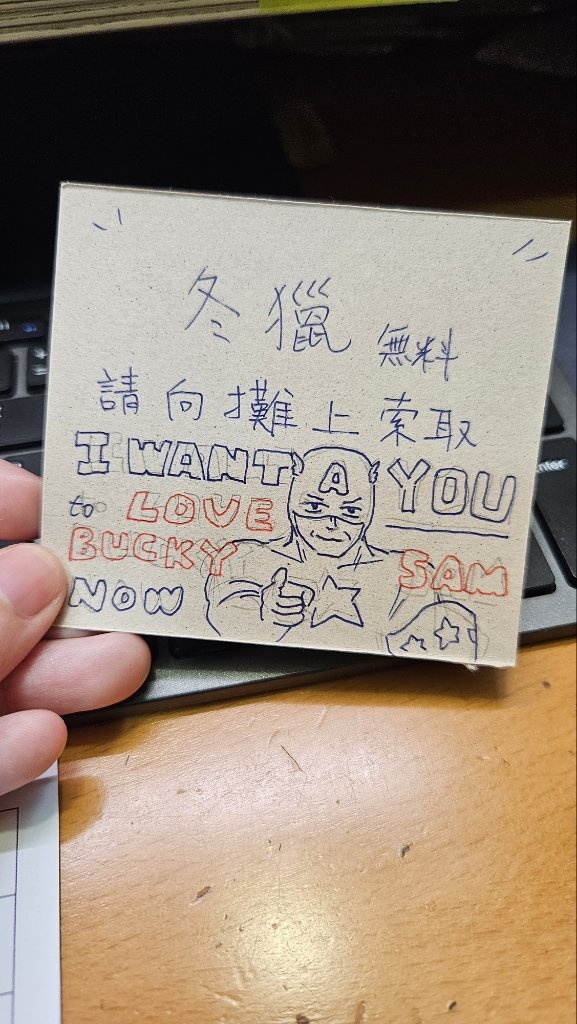 冬獵 無料
請向攤上索取
I WANT YOU
to LOVE
BUCKY SAM
NOW
A
enter